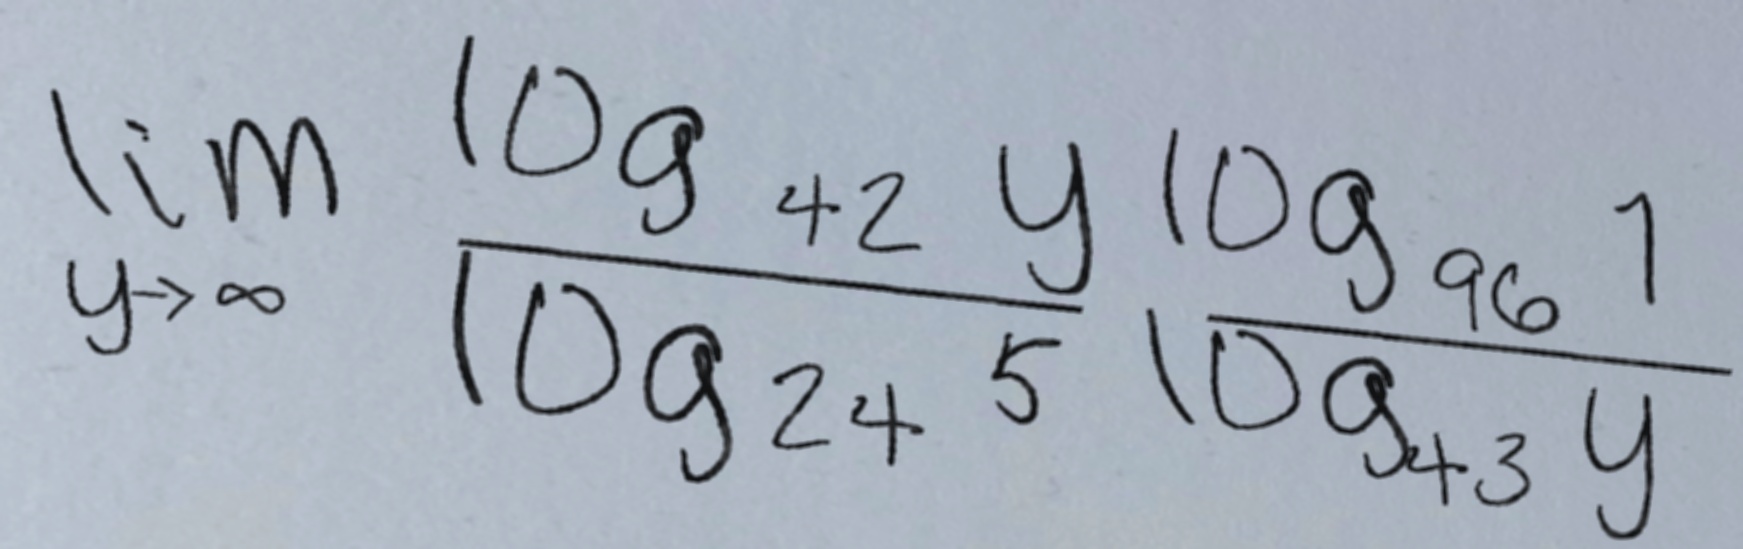 lim y→∞ \frac{log_{42} y}{log_{24} 5} \frac{log_{96} 1}{log_{43} y}